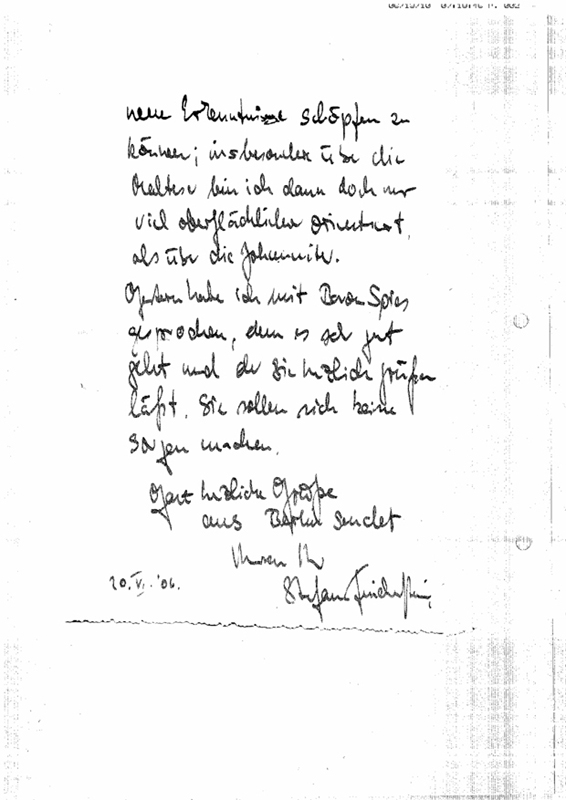 neue Erkenntnisse schöpfen zu
können; insbesondere über die
Malteser bin ich dann doch nur
viel oberflächlicher orientiert,
als über die Johanniter.
Gestern habe ich mit Baron Spies
gesprochen, dem es sehr gut
geht und der Sie herzlich grüßen
läßt. Sie sollen sich keine
Sorgen machen.
Ganz herzliche Grüße
aus Berlin sendet
Ihnen Ihr
Stefan
20. VI. '06.